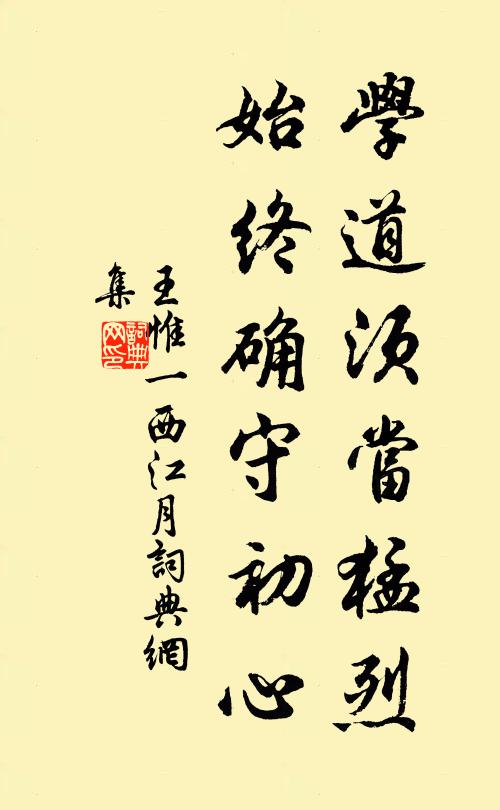 學道須當猛烈
始終确守初心
王惟一西江月詞典網
集
詞典
网印